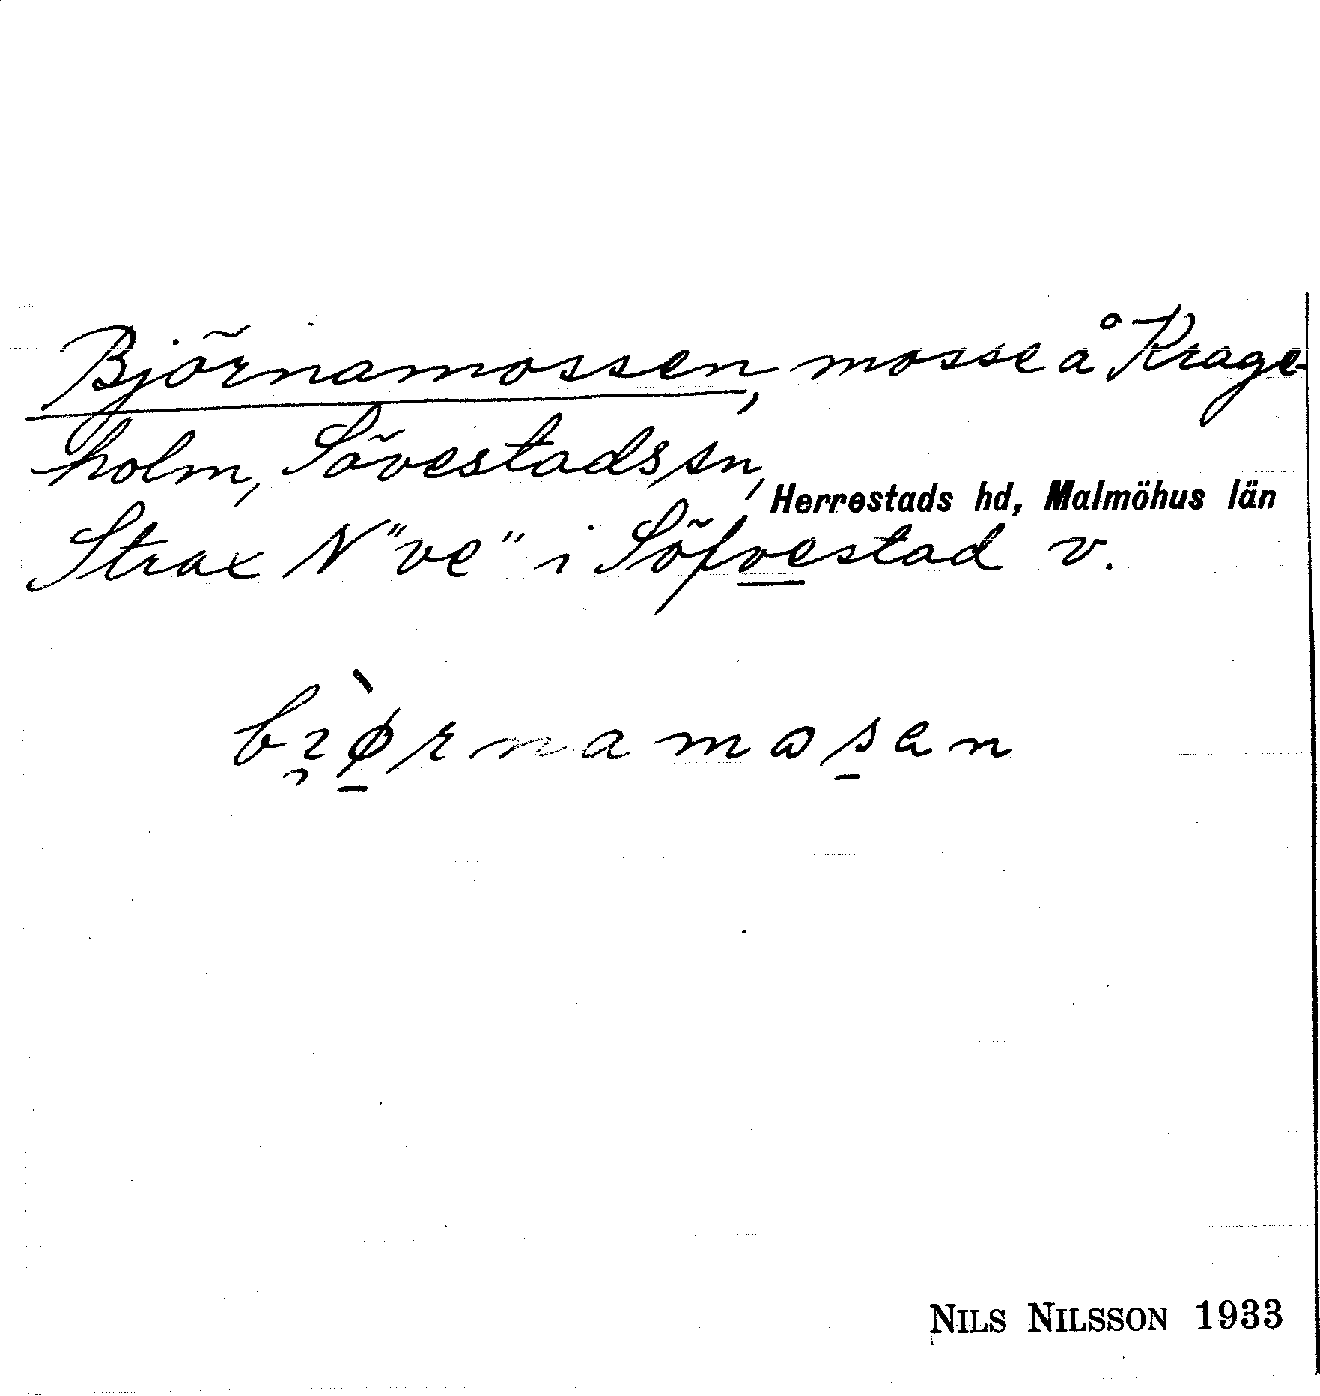 Björnamossen, mosse å Krage-
holm, Sövestads sn,
Herrestads hd, Malmöhus län
Strax N "ve" i Söfvestad v.
bi̯ø̀rnamosan
NILS NILSSON 1933